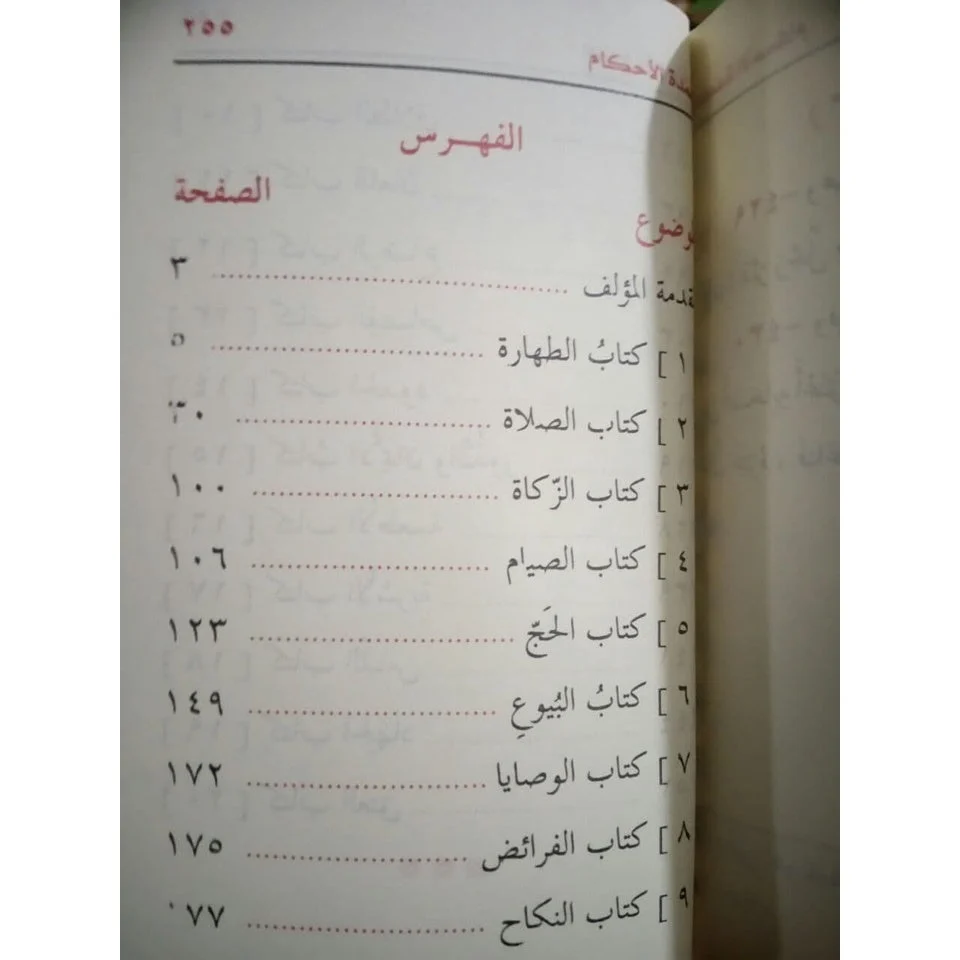 ٢٥٥
عمدة الأحكام
الفهرس
الموضوع الصفحة
مقدمة المؤلف ........ ٣
١ ] كتابُ الطهارة ........ ٥
٢ ] كتاب الصلاة ........ ٣٠
٣ ] كتاب الزّكاة ........ ١٠٠
٤ ] كتاب الصيام ........ ١٠٦
٥ ] كتاب الحَجّ ........ ١٢٣
٦ ] كتابُ البُيوعِ ........ ١٤٩
٧ ] كتاب الوصايا ........ ١٧٢
٨ ] كتاب الفرائض ........ ١٧٥
٩ ] كتاب النكاح ........ ١٧٧